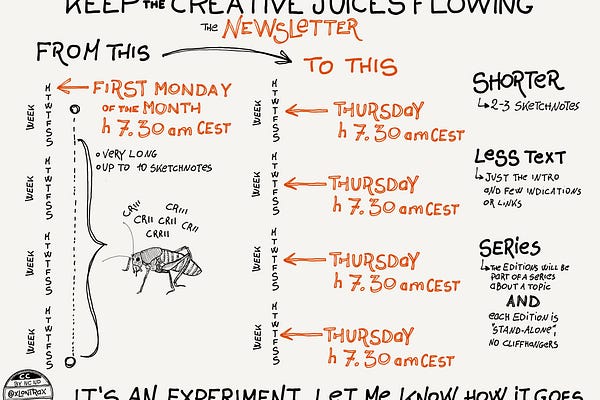 KEEP THE CREATIVE JUICES FLOWING
THE NEWSLETTER
FROM THIS
TO THIS
WEEK
HTWTFSS
FIRST MONDAY
OF THE MONTH
h 7.30 am CEST
• VERY LONG
• UP TO 10 SKETCHNOTES
WEEK
HTWTFSS
WEEK
HTWTFSS
WEEK
HTWTFSS
CRIII
CRIII
CRII CRII CRII
CRRII
WEEK
HTWTFSS
THURSDAY
h 7.30 am CEST
WEEK
HTWTFSS
THURSDAY
h 7.30 am CEST
WEEK
HTWTFSS
THURSDAY
h 7.30 am CEST
WEEK
HTWTFSS
THURSDAY
h 7.30 am CEST
SHORTER
2-3 SKETCHNOTES
LESS TEXT
JUST THE INTRO
AND FEW INDICATIONS
OR LINKS
SERIES
THE EDITIONS WILL BE
PART OF A SERIES
ABOUT A TOPIC
AND
EACH EDITION IS
"STAND-ALONE",
NO CLIFFHANGERS
CC
BY NC ND
@XLONTRAX
IT'S AN EXPERIMENT. LET ME KNOW HOW IT GOES